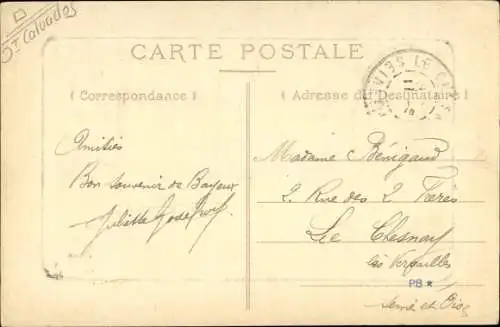 Dt Calvados
CARTE POSTALE
( Correspondance )
( Adresse du Destinataire )
LE
Amitiés
Bon souvenir de Bayeux
Juliette Godefroy
Madame Bénigaud
2. Rue des 2 Frères
Le Chesnay
les Versailles
PB *
Seine et Oise